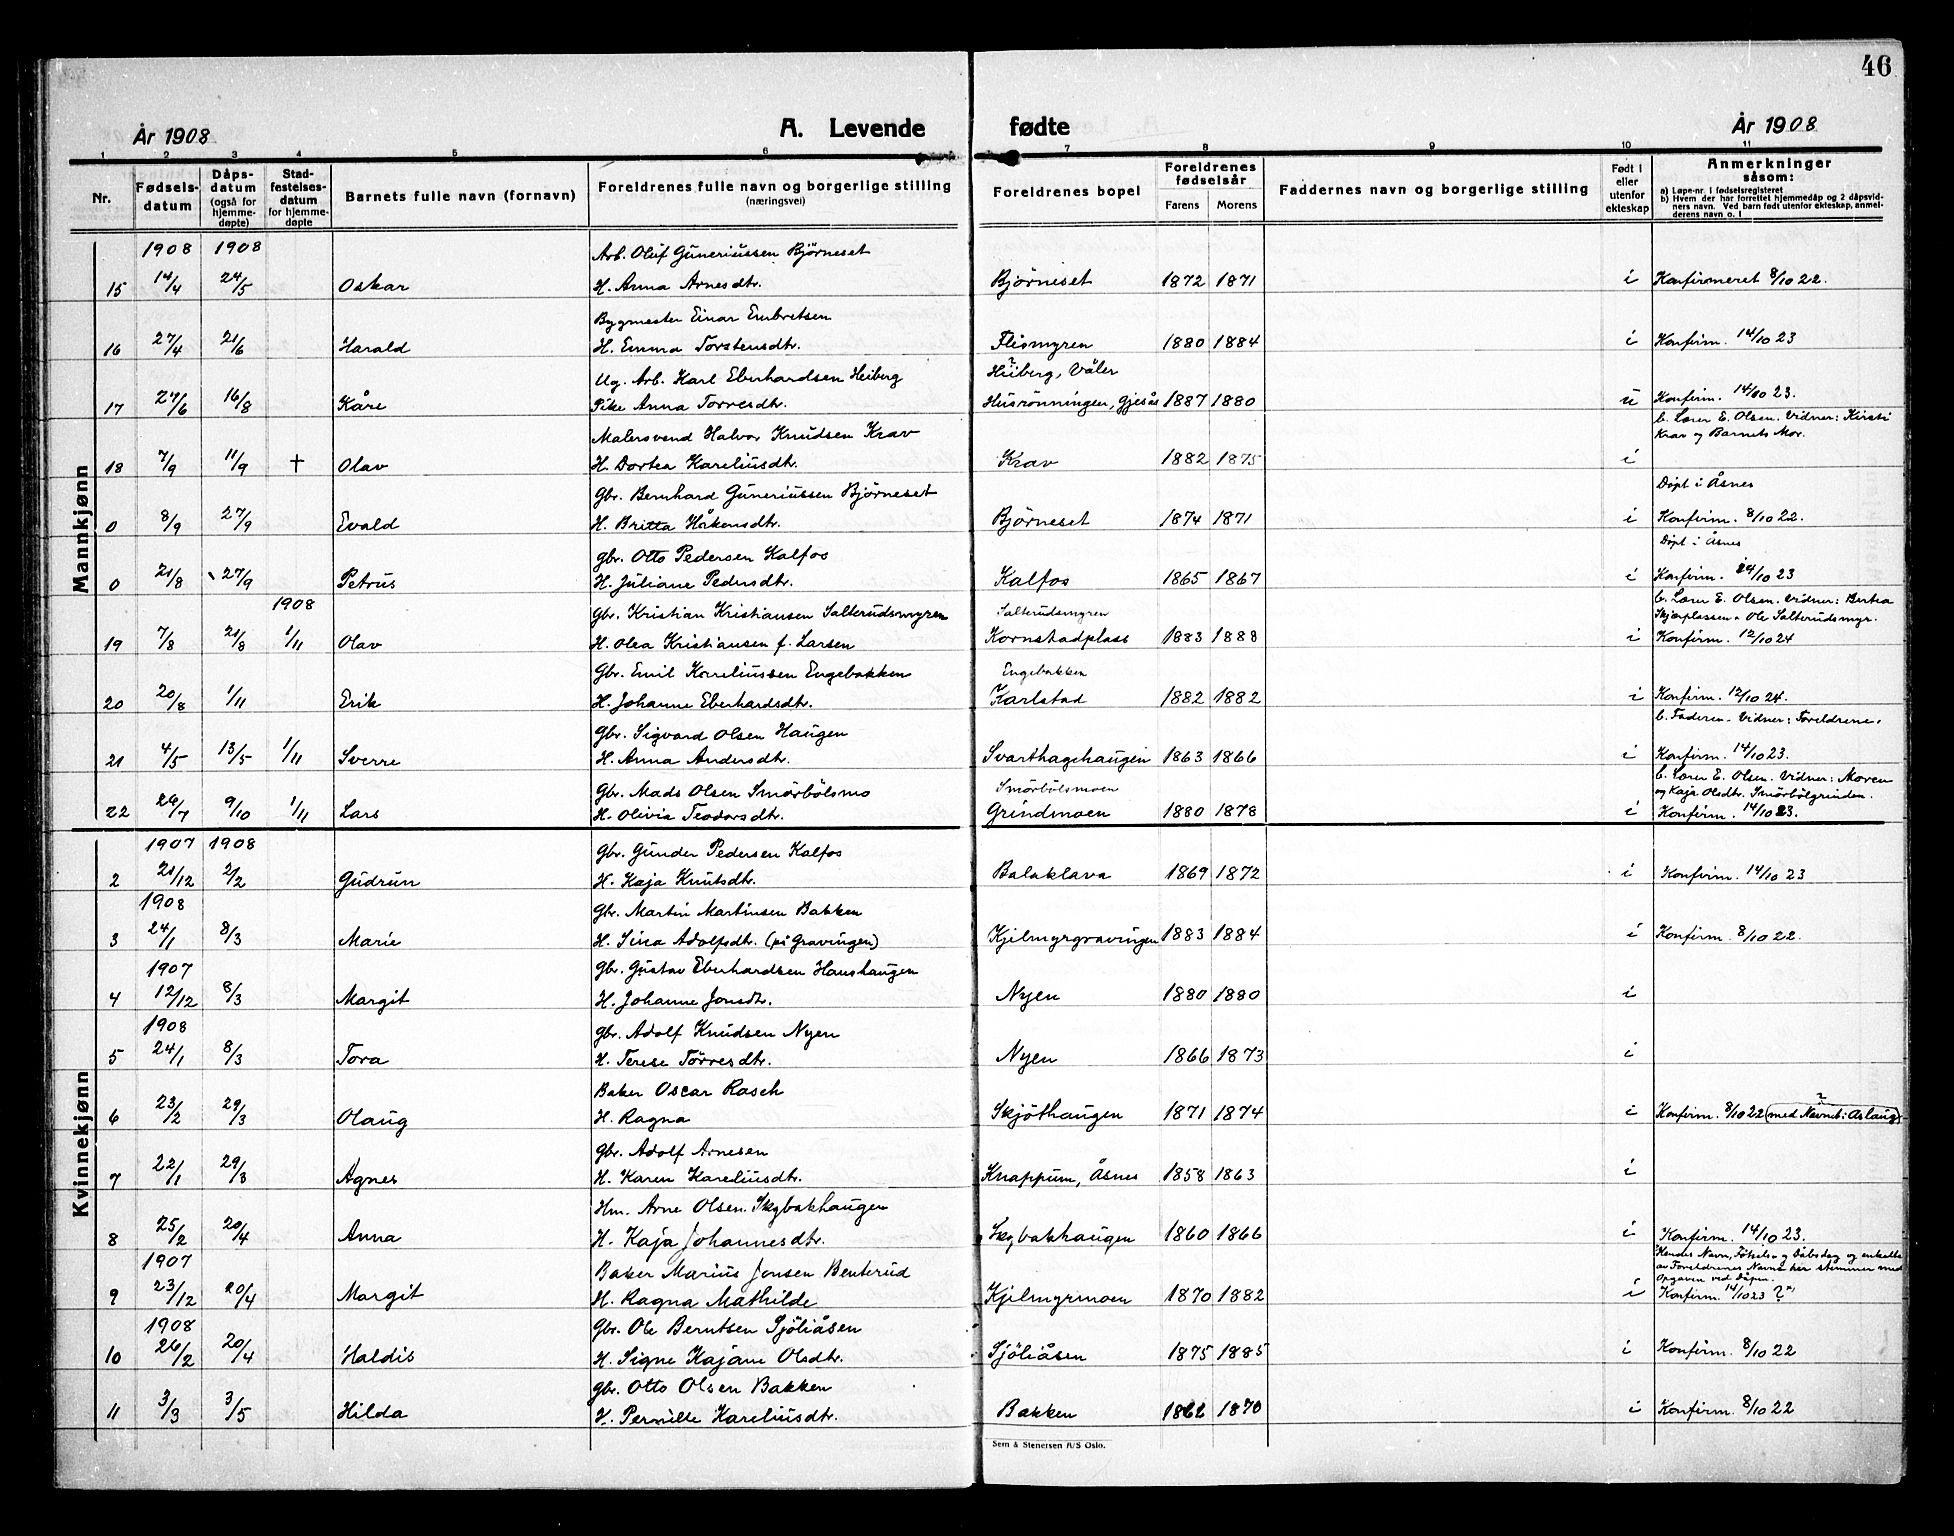 46
År 1908
A. Levende fødte
År 1908
1 2 3 4 5 6 7 8 9 10 11
Nr.
Fødselsdatum
Dåpsdatum (også for hjemmedøpte)
Stadfestelsesdatum for hjemmedøpte
Barnets fulle navn (fornavn)
Foreldrenes fulle navn og borgerlige stilling (næringsvei)
Foreldrenes bopel
Foreldrenes fødselsår
Farens Morens
Faddernes navn og borgerlige stilling
Født i eller utenfor ekteskap
Anmerkninger såsom:
a) Løpe-nr. i fødselsregisteret
b) Hvem der har forrettet hjemmedåp og 2 dåpsvidners navn. Ved barn født utenfor ekteskap, anmelderens navn o. l
Mannkjønn
1908 1908 Arb. Oluf Guneriussen Bjørneset
15 14/4 24/5 Oskar H. Anna Arnesdtr. Bjørneset 1872 1871 i Konfirmeret 8/10 22.
Bygmester Einar Embretsen
16 27/4 21/6 Harald H. Emma Torstensdtr. Flismyren 1880 1884 i Konfirm. 14/10 23
Ug. Arb. Karl Eberhardsen Heiberg Heiberg, Våler
17 27/6 16/8 Kåre Pike Anna Torresdtr. Husrønningen, Gjesås 1887 1880 u Konfirm. 14/10 23.
b. Lærer E. Olsen. Vidner: Kirsti
Malersvend Halvor Knudsen Krav Krav og Barnets Mor.
18 7/9 11/9 † Olav H. Dortea Kareliusdtr. Krav 1882 1875 i
Gbr. Bernhard Guneriussen Bjørneset Døpt i Åsnes
0 8/9 27/9 Evald H. Britta Håkensdtr. Bjørneset 1874 1871 i Konfirm. 8/10 22.
Gbr. Otto Pedersen Kalfos Døpt i Åsnes
0 21/8 27/9 Petrus H. Juliane Pedersdtr. Kalfos 1865 1867 i Konfirm. 14/10 23
1908 Gbr. Kristian Kristiansen Salterudsmyren Salterudsmyren b. Lærer E. Olsen. Vidner: Bertea
Skjærplassen og Ole Salterudsmyr.
19 7/8 21/8 1/11 Olav H. Olea Kristiansen f. Larsen Kornstadplass 1883 1888 i Konfirm. 12/10 24
Gbr. Emil Korneliussen Engebakken Engebakken
20 20/8 1/11 Erik H. Johanne Eberhardsdtr. Karlstad 1882 1882 i Konfirm. 12/10 24.
Gbr. Sigvard Olsen Haugen b. Faderen. Vidner: Foreldrene.
21 4/5 13/5 1/11 Sverre H. Anna Andersdtr. Svarthagehaugen 1863 1866 i Konfirm. 14/10 23.
Gbr. Mads Olsen Smörbölsmo Smörbölsmoen b. Lærer E. Olsen. Vidner: Moren
og Kaja Olsdtr. Smörbölgrinden.
22 26/7 9/10 1/11 Lars H. Olivia Teodorsdtr. Grindmoen 1880 1878 i Konfirm. 14/10 23.
Kvinnekjønn
1907 1908 Gbr. Gunder Pedersen Kalfos
2 21/12 2/2 Gudrun H. Kaja Knutsdtr. Balaklava 1869 1872 i Konfirm. 14/10 23
1908 Gbr. Martin Martinsen Bakken
3 24/1 8/3 Marie H. Sina Adolfsdtr. (på Gravingen) Kjilmyrgravingen 1883 1884 i Konfirm. 8/10 22.
1907 Gbr. Gustav Eberhardsen Hanshaugen
4 12/12 8/3 Margit H. Johanne Jonsdtr. Nyen 1880 1880 i
1908 Gbr. Adolf Knudsen Nyen
5 24/1 8/3 Tora H. Terese Törresdtr. Nyen 1866 1873 i
Baker Oscar Rasch
6 23/2 29/3 Olaug H. Ragna Skjöthaugen 1871 1874 i Konfirm. 8/10 22 (med Navnet: Aslaug) ?
Gbr. Adolf Arnesen
7 22/1 29/3 Agnes H. Karen Kareliusdtr. Knappum, Åsnes 1858 1863 i
Hm. Arne Olsen Skybakhaugen
8 25/2 20/4 Anna H. Kaja Johannesdtr. Skybakhaugen 1860 1866 i Konfirm. 14/10 23.
1907 Baker Marius Jonsen Benterud Hendes Navn, Fødsels- og Dåbsdag og enkelte
av Foreldrenes Navne her stemmer med
Opgaven ved Dåpen.
9 23/12 20/4 Margit H. Ragna Mathilde Kjilmyrmoen 1870 1882 i Konfirm. 14/10 23 ?
1908 Gbr. Ole Berntsen Sjöliåsen
10 26/2 20/4 Haldis H. Signe Kajane Olsdtr. Sjöliåsen 1875 1885 i Konfirm. 8/10 22
Gbr. Otto Olsen Bakken
11 3/3 3/5 Hilda H. Pernille Kareliusdtr. Bakken 1862 1870 i Konfirm. 8/10 22
Sem & Stenersen A/S Oslo.